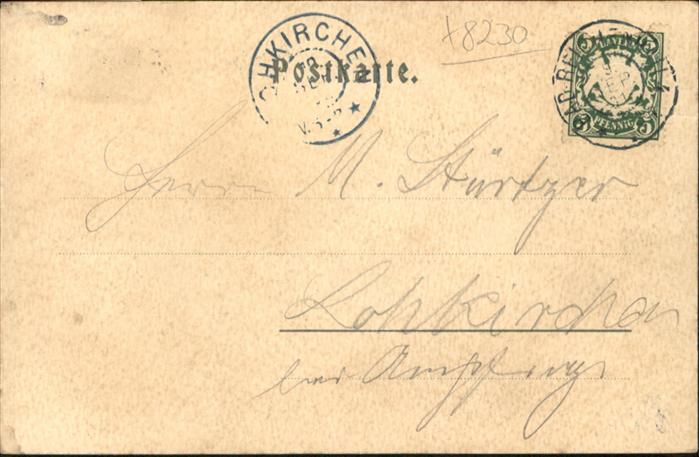 +8230
Postkarte.
OHKIRCHE
5 5
PFENNIG
Herrn M. Stürtzer
Lohkirchen
bei Ampfing